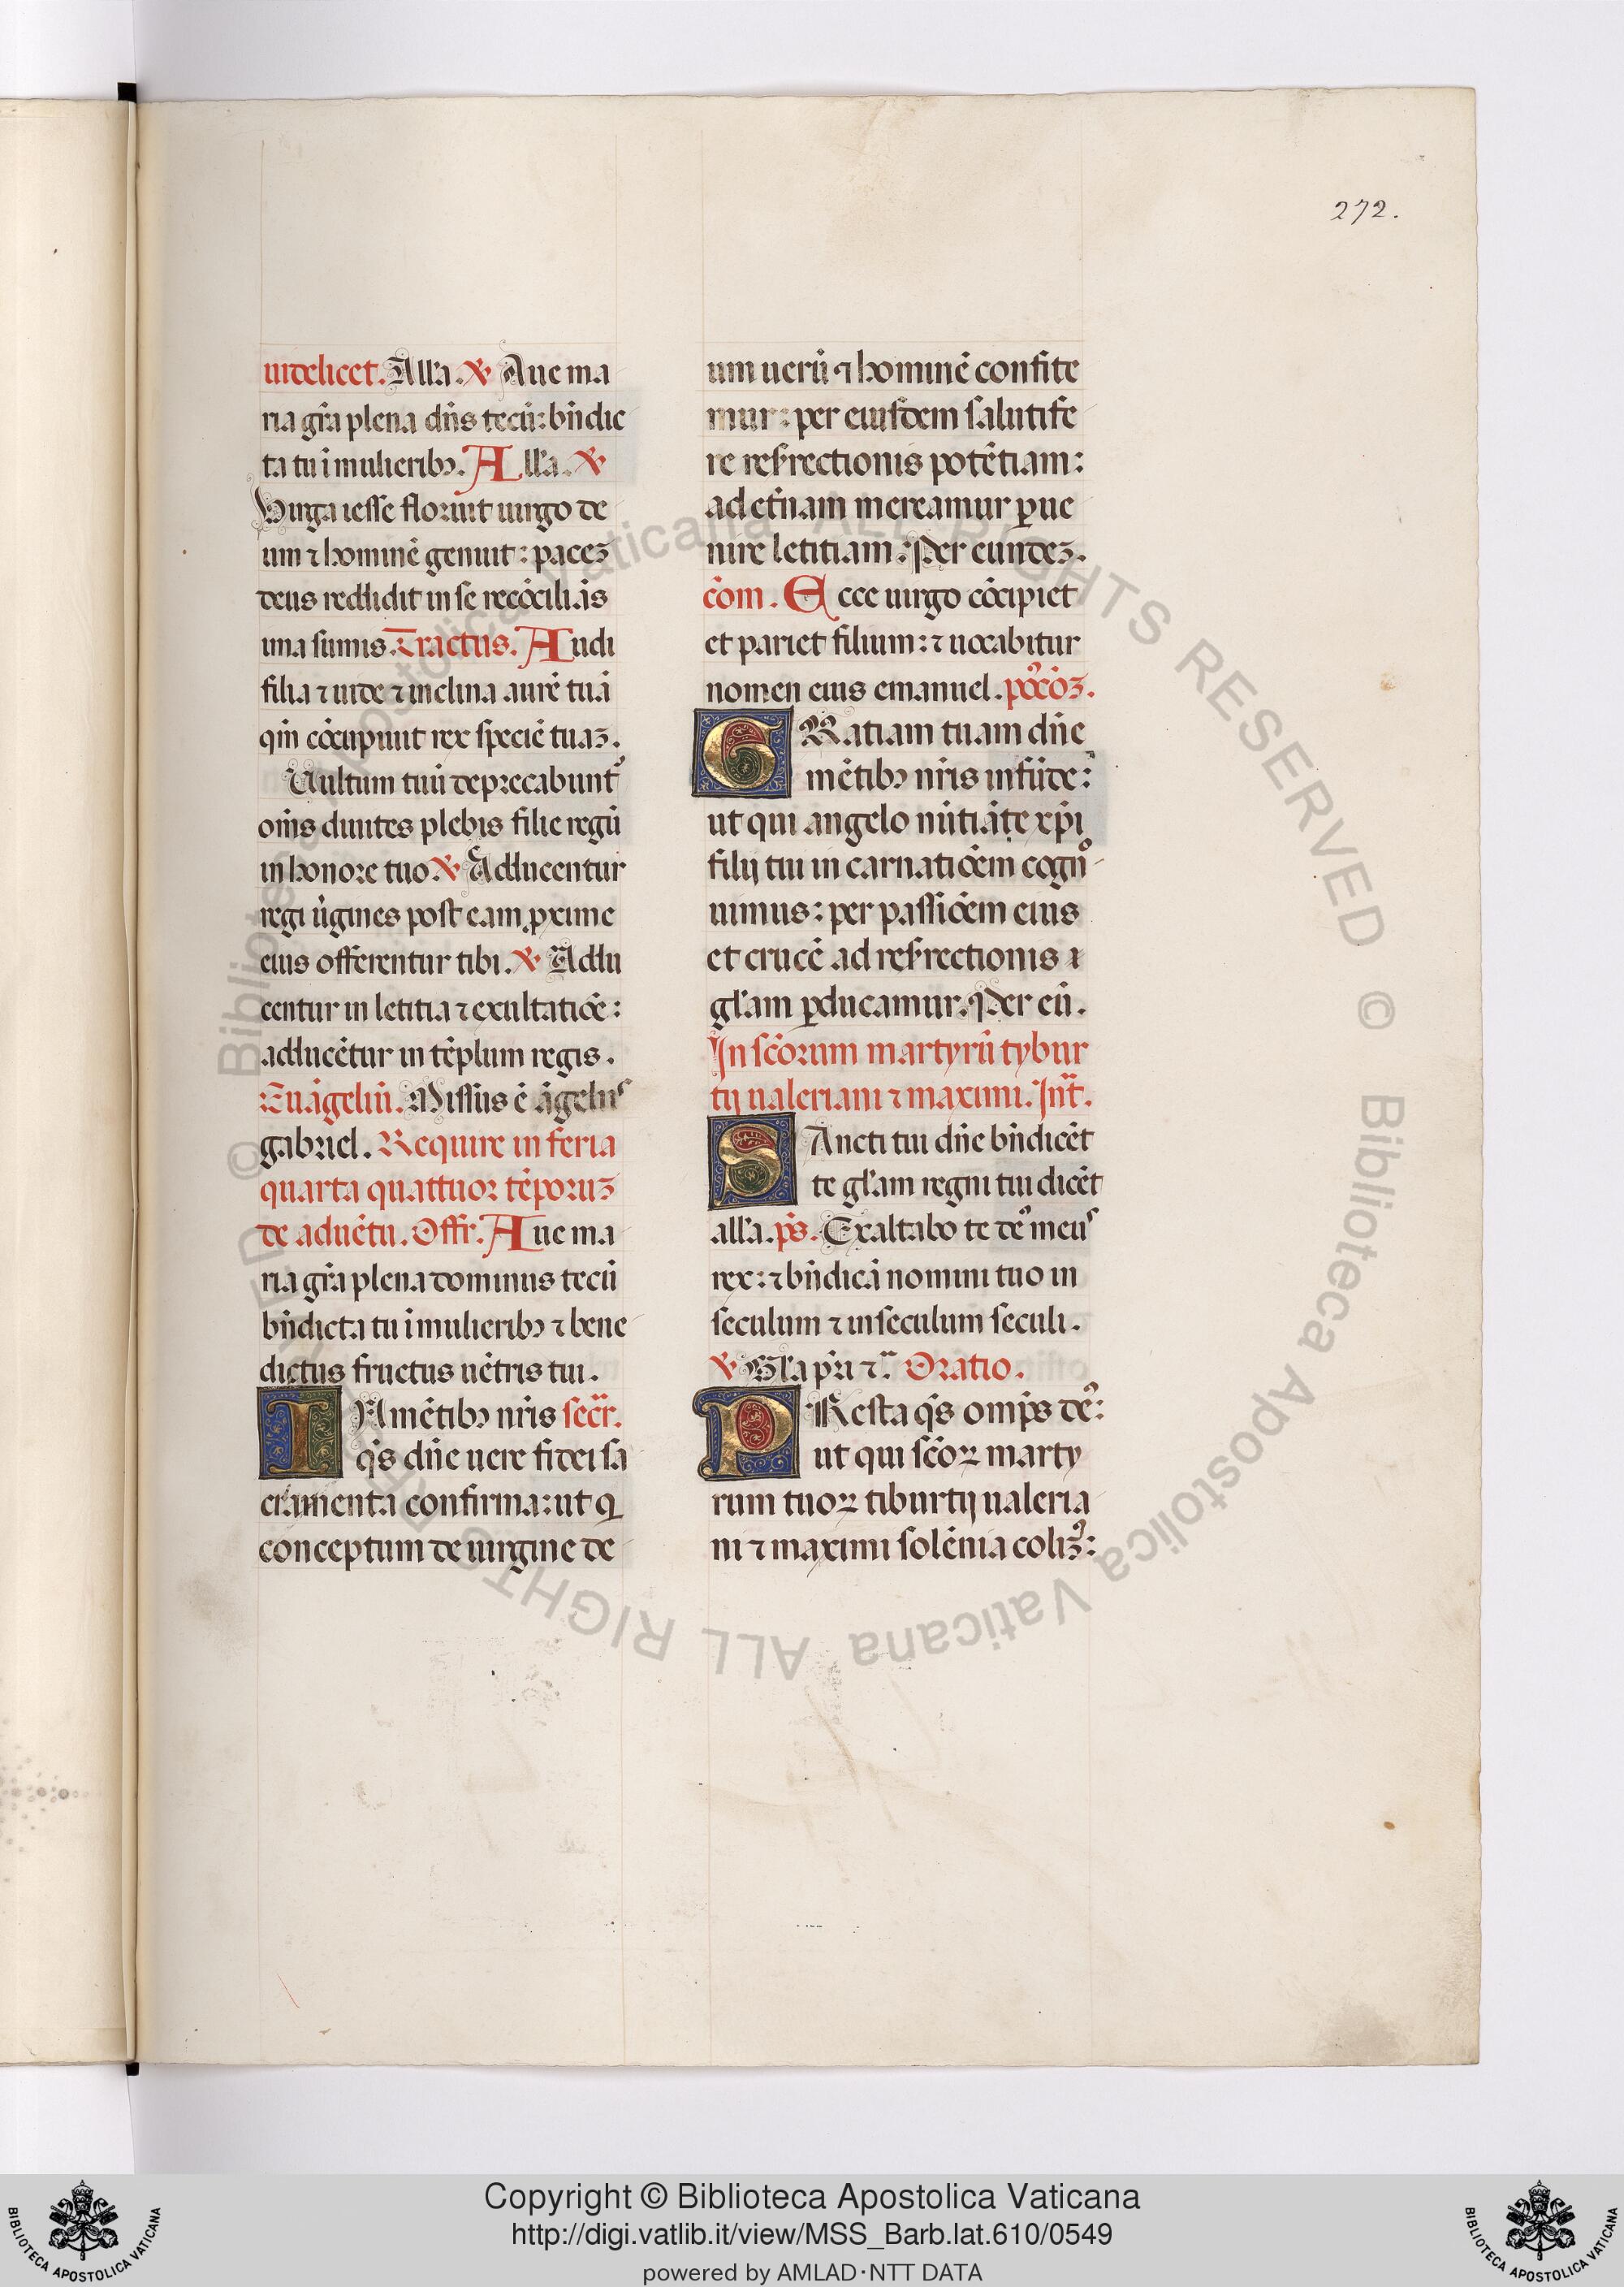 272.
uidelicet. Alla. ℣ Aue ma
ria gr̄a plena dn̄s tecū: bn̄dic
ta tu ī mulieribꝫ. Alla. ℣
Uirga iesse floruit uirgo de
um ⁊ hominē genuit: paceꝫ
deus reddidit in se recōciliās
ima sumis. Tractus. Audi
filia ⁊ uide ⁊ inclina aurē tuā
qm̄ cōcupiuit rex speciē tuaꝫ.
Uultum tuū deprecabunt᷑
om̄s diuites plebis filie regū
in honore tuo ℣ Adducentur
regi ūgines post eam ꝓxime
eius offerentur tibi. ℣ Addu
centur in letitia ⁊ exultatiōe:
adducētur in tēplum regis.
Euāgeliū. Missus ē āgelus
gabriel. Require in feria
quarta quattuor tēporuꝫ
de aduētu. Offr. Aue ma
ria gr̄a plena dominus tecū
bn̄dicta tu ī mulieribꝫ ⁊ bene
dictus fructus uētris tui.
IN mētibꝫ nr̄is secr̄.
qs̄ dn̄e uere fidei sa
cramenta confirma: ut q
conceptum de uirgine de
um uerū ⁊ hominē confite
mur: per eiusdem salutife
re resr̄rectionis potētiam:
ad et̄nam mereamur ꝑue
nire letitiam. Per eundeꝫ.
cōm. Ecce uirgo cōcipiet
et pariet filium: ⁊ uocabitur
nomen eius emanuel. pꝰcōꝫ.
GRatiam tuam dn̄e
mētibꝫ nr̄is infūde:
ut qui angelo nūtiāte xp̄i
filij tui in carnatiōem cogno
uimus: per passiōem eius
et crucē ad resr̄rectionis
gl̄am ꝑducamur. Per eū.
In scōrum martyrū tybur
tij ualeriani ⁊ maximi. Int̄.
SAncti tui dn̄e bn̄dicēt
te gl̄am regni tui dicēt
all̄a. ps̄. Exaltabo te deꝰ meus
rex: ⁊ bn̄dicā nomini tuo in
seculum ⁊ in seculum seculi.
℣ Gl̄a pr̄i ⁊c̄ Oratio.
PResta qs̄ omp̄s deꝰ:
ut qui scōꝝ marty
rum tuoꝝ tiburtij ualeria
ni ⁊ maximi solēnia colimꝰ:
© Biblioteca Apostolica Vaticana ALL RIGHTS RESERVED
© Biblioteca Apostolica Vaticana ALL RIGHTS RESERVED
Copyright © Biblioteca Apostolica Vaticana
http://digi.vatlib.it/view/MSS_Barb.lat.610/0549
powered by AMLAD·NTT DATA
BIBLIOTECA APOSTOLICA VATICANA
BIBLIOTECA APOSTOLICA VATICANA